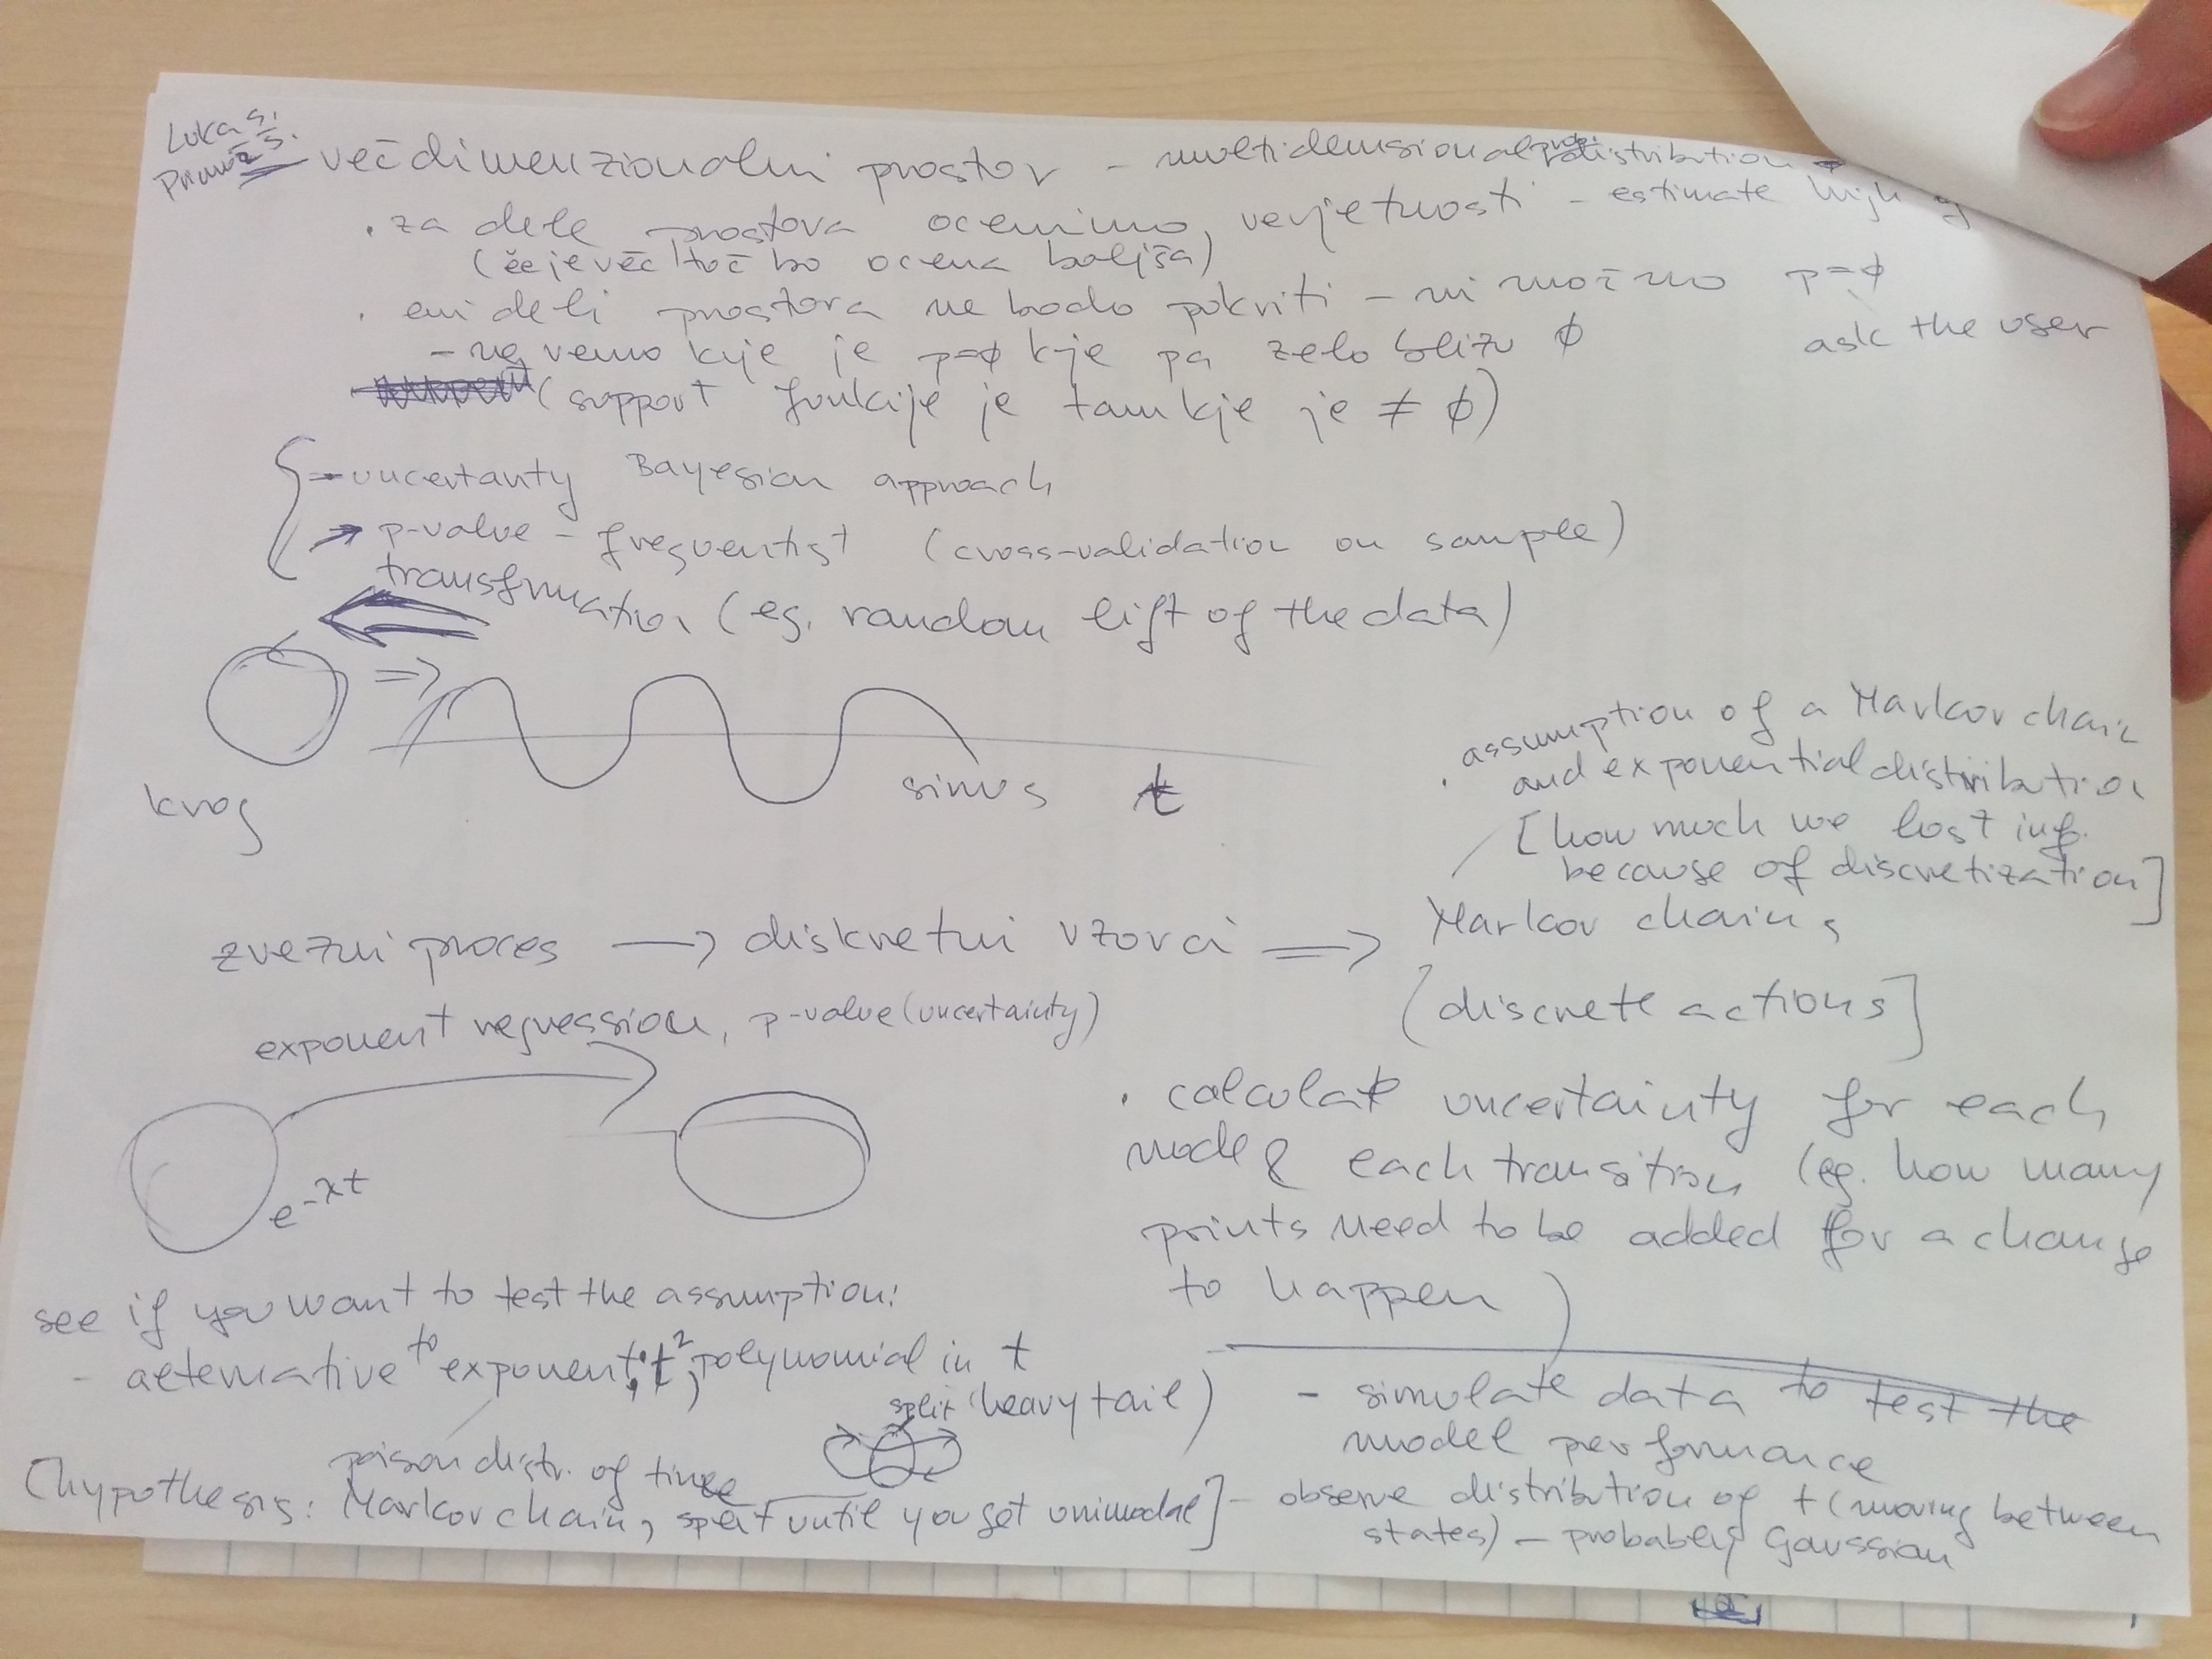 Luka S.
Primož S.
večdimenzionalni prostor - multidimensional distribution
. za dele prostora ocenimo verjetnosti - estimate high
(če je več točk bo ocena boljša)
. eni deli prostora ne bodo pokriti - ni možno p=ϕ
ask the user
- ne vemo kje je p=ϕ kje pa zelo blizu ϕ
(support funkcije je tam kje je ≠ ϕ)
→ uncertanty Bayesian approach
→ p-value - frequentist (cross-validation on sample)
transformation (eg. random lift of the data)
⇒
krog
sinus t
. assumption of a Markov chain
and exponential distribution
[how much we lost inf.
because of discretization]
zvezni proces → diskretni vzorci ⇒ Markov chains
[discrete actions]
exponent regression, p-value (uncertainty)
e^-λt
. calculate uncertainty for each
node & each transition (eg. how many
points need to be added for a change
to happen)
see if you want to test the assumption:
- alternative to exponent: t², polynomial in t
split (heavy tail)
poison distr. of time
[hypothesis: Markov chain, split until you get unimodal]
- simulate data to test the
model performance
- observe distribution of t (moving between
states) - probably Gaussian